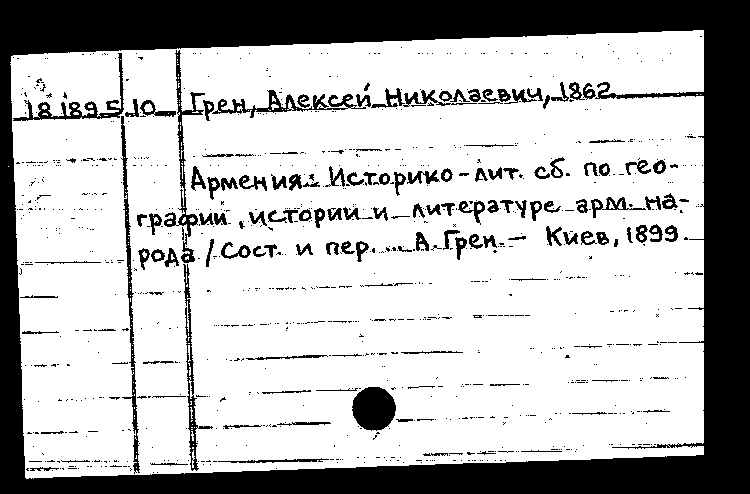 18 189 5 10 Грен, Алексей Николаевич, 1862
Армения: Историко-лит. сб. по гео-
графии, истории и литературе арм. на-
рода / Сост. и пер. ... А. Грен. - Киев, 1899.